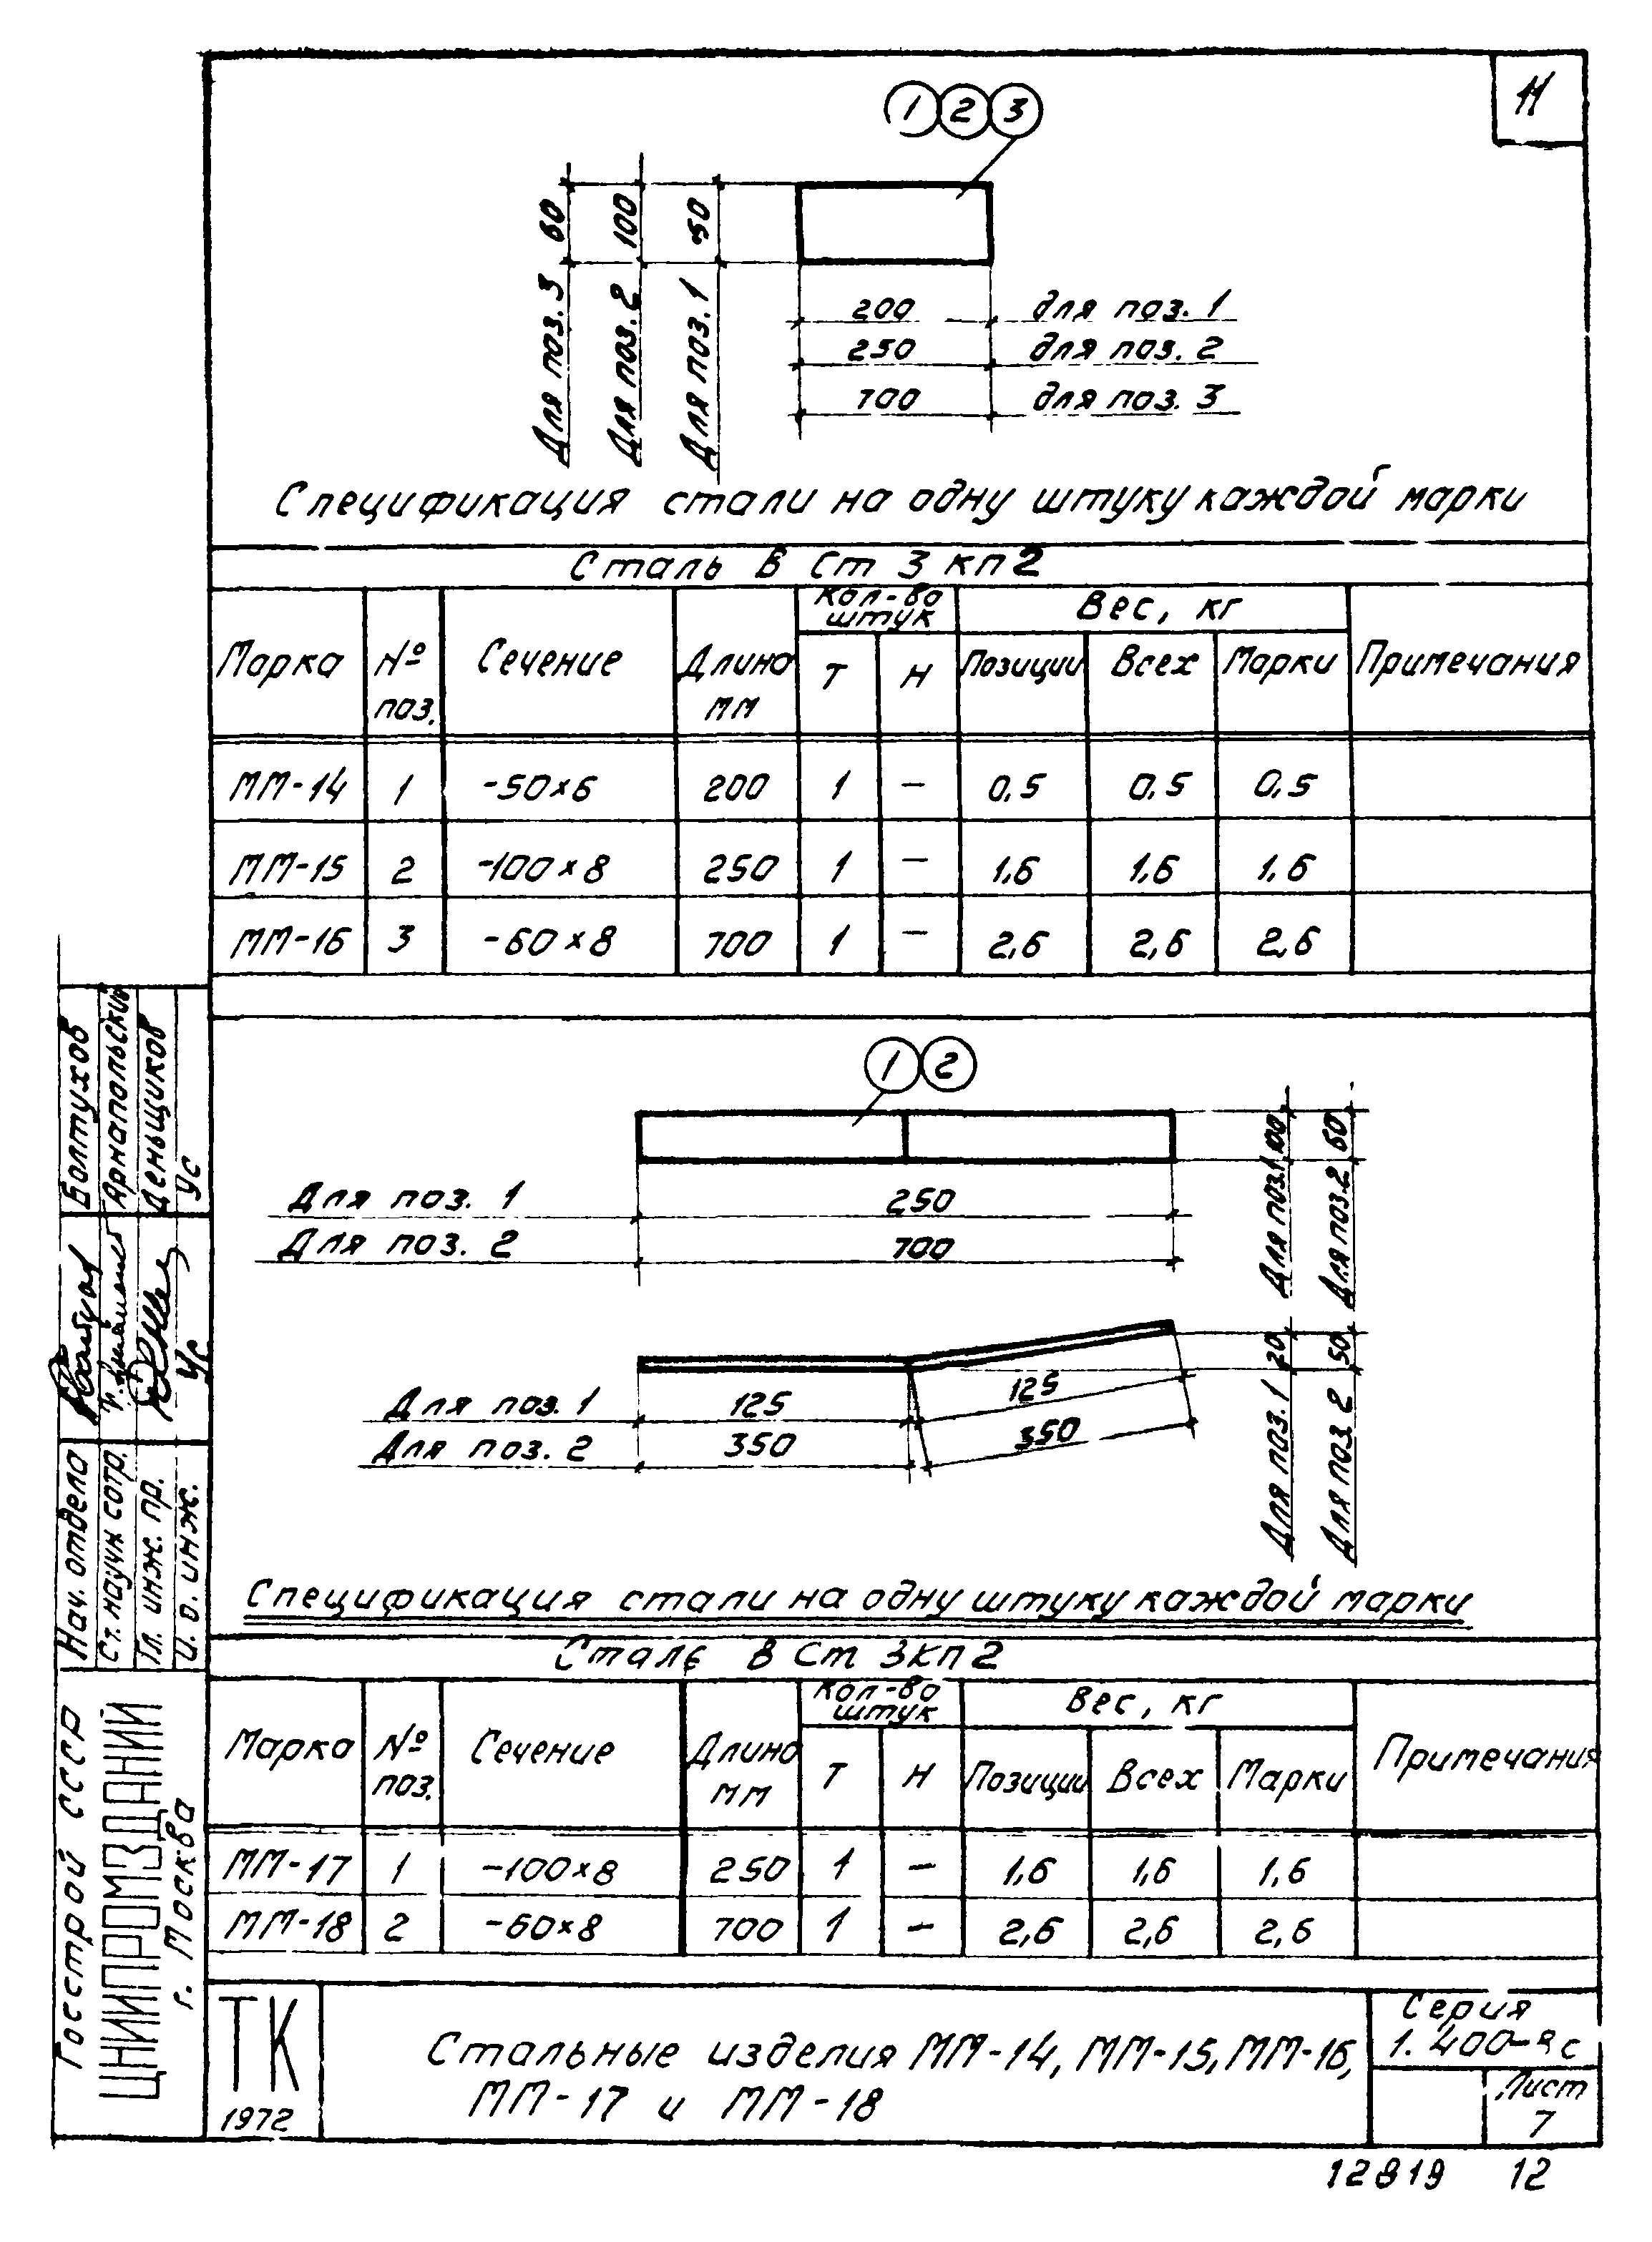 11
1 2 3
60 100 50
Для поз. 3
Для поз. 2
Для поз. 1
200 для поз. 1
250 для поз. 2
700 для поз. 3
Спецификация стали на одну штуку каждой марки
Сталь В Ст 3 кп 2
Марка № поз. Сечение Длина мм Кол-во штук Т Н Вес, кг Позиции Всех Марки Примечания
ММ-14 1 -50×6 200 1 – 0,5 0,5 0,5
ММ-15 2 -100×8 250 1 – 1,6 1,6 1,6
ММ-16 3 -60×8 700 1 – 2,6 2,6 2,6
1 2
Для поз. 1 250
Для поз. 2 700
Для поз. 1 100
Для поз. 2 60
Для поз. 1 125 125
Для поз. 2 350 350
Для поз. 1 20
Для поз. 2 50
Спецификация стали на одну штуку каждой марки
Сталь В Ст 3кп2
Марка № поз. Сечение Длина мм Кол-во штук Т Н Вес, кг Позиции Всех Марки Примечания
ММ-17 1 -100×8 250 1 – 1,6 1,6 1,6
ММ-18 2 -60×8 700 1 – 2,6 2,6 2,6
Нач. отдела Болтухов
Ст. научн сотр. Арнапольский
Гл. инж. пр. Деньщиков
И. о. инж. Ус
Госстрой СССР
ЦНИИПРОМЗДАНИЙ
г. Москва
ТК
1972
Стальные изделия ММ-14, ММ-15, ММ-16,
ММ-17 и ММ-18
Серия
Лист
7
12819 12